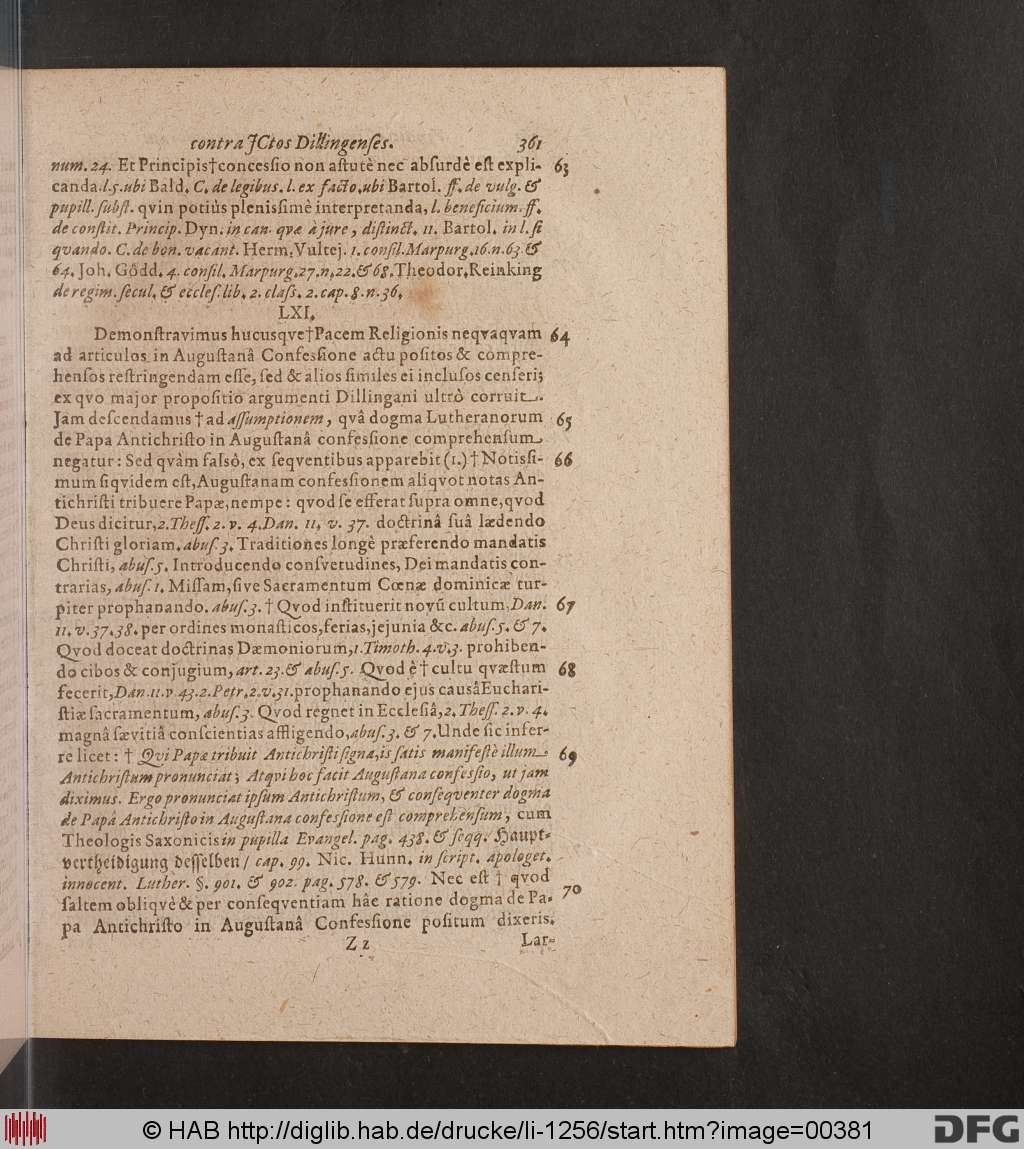 contra JCtos Dillingenses. 361
num. 24. Et Principis†concessio non astutè nec absurdè est expli- 63
canda.l.5.ubi Bald. C. de legibus. l. ex facto.ubi Bartol. ff. de vulg. &
pupill. subst. qvin potiùs plenissimè interpretanda, l. beneficium. ff.
de constit. Princip. Dyn. in can. qvæ à jure, distinct. 11. Bartol. in l. si
qvando. C. de bon. vacant. Herm. Vultej. 1. consil. Marpurg. 16. n. 63. &
64. Joh. Gödd. 4. consil. Marpurg. 27. n. 22. & 68. Theodor. Reinking
de regim. secul. & eccles. lib. 2. class. 2. cap. 8. n. 36.
LXI.
Demonstravimus hucusqve†Pacem Religionis neqvaqvam 64
ad articulos in Augustanâ Confessione actu positos & compre-
hensos restringendam esse, sed & alios similes ei inclusos censeri;
ex qvo major propositio argumenti Dillingani ultrò corruit.
Jam descendamus † ad assumptionem, qvâ dogma Lutheranorum 65
de Papa Antichristo in Augustanâ confessione comprehensum
negatur: Sed qvàm falsò, ex seqventibus apparebit (1.) † Notissi- 66
mum siqvidem est, Augustanam confessionem aliqvot notas An-
tichristi tribuere Papæ, nempe: qvod se efferat supra omne, qvod
Deus dicitur, 2. Thess. 2. v. 4. Dan. 11. v. 37. doctrinâ suâ lædendo
Christi gloriam. abus. 3. Traditiones longè præferendo mandatis
Christi, abus. 5. Introducendo consvetudines, Dei mandatis con-
trarias, abus. 1. Missam, sive Sacramentum Cœnæ dominicæ tur-
piter prophanando. abus. 3. † Qvod instituerit novū cultum, Dan. 67
11. v. 37. 38. per ordines monasticos, ferias, jejunia &c. abus. 5. & 7.
Qvod doceat doctrinas Dæmoniorum, 1. Timoth. 4. v. 3. prohiben-
do cibos & conjugium, art. 23. & abus. 5. Qvod è † cultu qvæstum 68
fecerit, Dan. 11. v 43. 2. Petr. 2. v. 31. prophanando ejus causâ Euchari-
stiæ sacramentum, abus. 3. Qvod regnet in Ecclesiâ, 2. Thess. 2. v. 4.
magnâ sævitiâ conscientias affligendo, abus. 3. & 7. Unde sic infer-
re licet: † Qvi Papæ tribuit Antichristi signa, is satis manifestè illum 69
Antichristum pronunciat; Atqvi hoc facit Augustana confessio, ut jam
diximus. Ergo pronunciat ipsum Antichristum, & conseqventer dogma
de Papâ Antichristo in Augustana confessione est comprehensum, cum
Theologis Saxonicis in pupilla Evangel. pag. 438. & seqq. Haupt-
vertheidigung desselben / cap. 99. Nic. Hunn. in script. apologet.
innocent. Luther. §. 901. & 902. pag. 578. & 579. Nec est † qvod 70
saltem obliqvè & per conseqventiam hâc ratione dogma de Pa-
pa Antichristo in Augustanâ Confessione positum dixeris.
Z z Lar-
© HAB http://diglib.hab.de/drucke/li-1256/start.htm?image=00381
DFG